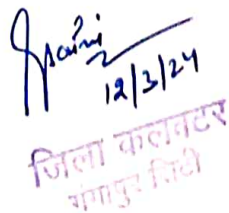 12/3/24
जिला कलक्टर
गंगापुर सिटी